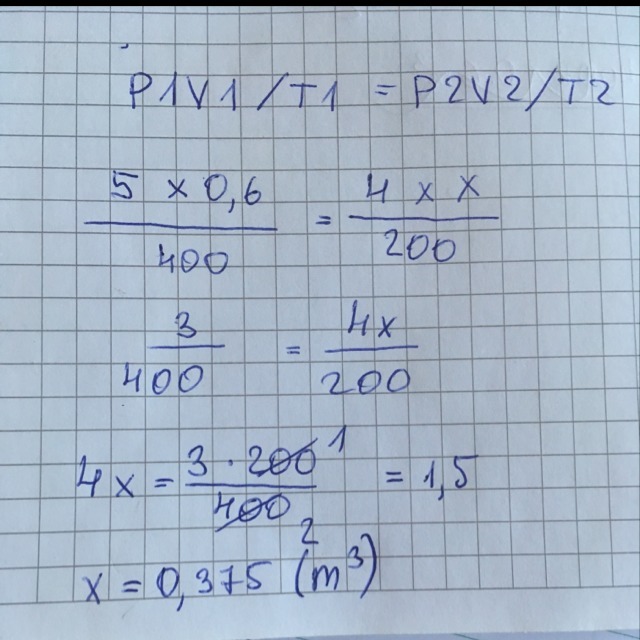 P1V1/T1 = P2V2/T2
5 x 0,6 / 400 = 4 x x / 200
3 / 400 = 4x / 200
4x = 3 · 200 1 / 400 2 = 1,5
x = 0,375 (m³)